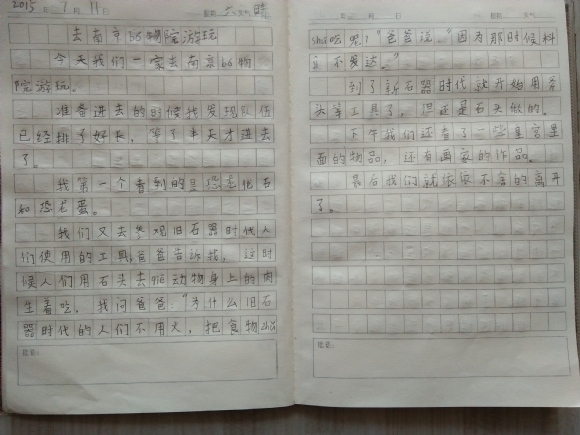 2015 年 7 月 11 日 星期 六 天气 晴
去南京bó物院游玩
今天我们一家去南京bó物
院游玩。
准备进去的时候我发现队伍
已经排了好长，等了半天才进去
了。
我第一个看到的是恐龙化石
和恐龙蛋。
我们又去参观旧石器时代人
们使用的工具,爸爸告诉我，这时
候人们用石头去 动物身上的肉
生着吃，我问爸爸："为什么旧石
器时代的人们不用火，把食物
批语：
年 月 日 星期 天气
shú吃呢？"爸爸说："因为那时候科
不发达。"
到了新石器时代就开始用斧
头等工具了，但还是石头做的。
下午我们还看了一些皇宫里
面的物品，还有画家的作品。
最后我们就依依不舍的离开
了。
批语：